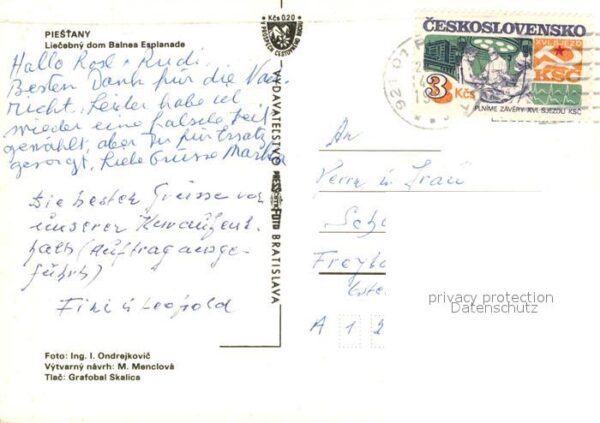 PIEŠŤANY
Liečebný dom Balnea Esplanade
Hallo Rosl + Rudi.
Besten Dank für die Nach-
richt. Leider habe ich
wieder eine falsche Zeit
gewählt, aber für Ersatz
gesorgt. Liebe Grüsse Martha
Die besten Grüsse von
unserer Kuraufent
halt (Auftrag ausge-
führt)
Fini u Leopold
Foto: Ing. I. Ondrejkovič
Výtvarný návrh: M. Menclová
Tlač: Grafobal Skalica
Kčs 0,20
VYDAVATEĽSTVO PRESSFOTO BRATISLAVA
921 01
ČESKOSLOVENSKO
XVI. SJEZD
KSČ
3 Kčs
PLNÍME ZÁVĚRY XVI. SJEZDU KSČ
An
Herrn u Frau
Sch
Freyt
A 1 2
privacy protection
Datenschutz